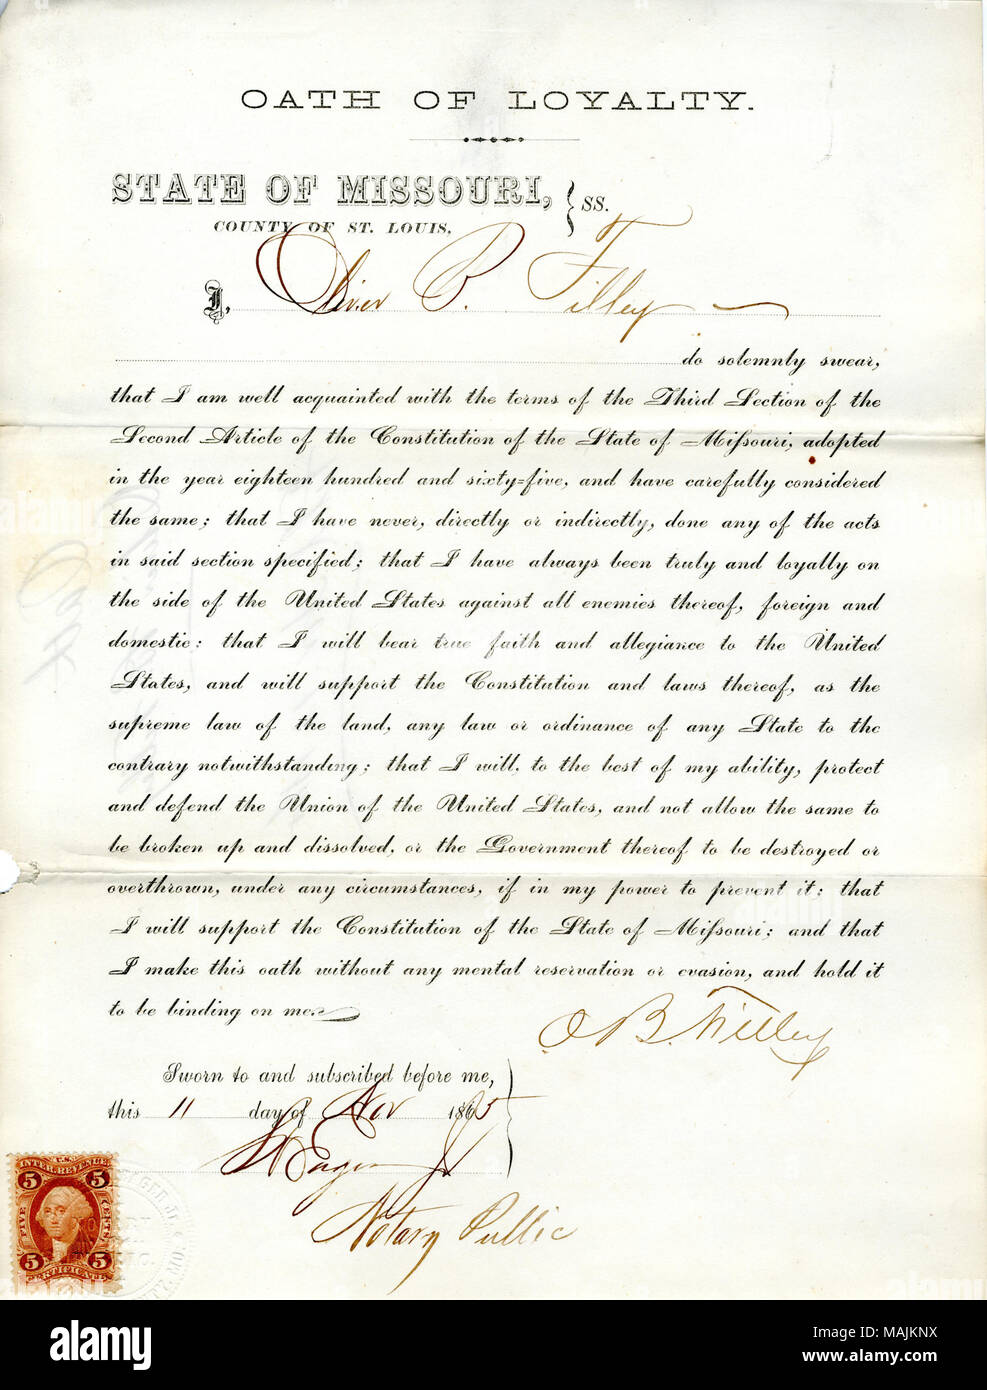 OATH OF LOYALTY.
STATE OF MISSOURI, } SS.
COUNTY OF ST. LOUIS,
I, Oliver B. Filley
do solemnly swear,
that I am well acquainted with the terms of the Third Section of the
Second Article of the Constitution of the State of Mißouri, adopted
in the year eighteen hundred and sixty-five, and have carefully considered
the same; that I have never, directly or indirectly, done any of the acts
in said section specified; that I have always been truly and loyally on
the side of the United States against all enemies thereof, foreign and
domestic: that I will bear true faith and allegiance to the United
States, and will support the Constitution and laws thereof, as the
supreme law of the land, any law or ordinance of any State to the
contrary notwithstanding; that I will, to the best of my ability, protect
and defend the Union of the United States, and not allow the same to
be broken up and dissolved, or the Government thereof to be destroyed or
overthrown, under any circumstances, if in my power to prevent it; that
I will support the Constitution of the State of Mißouri; and that
I make this oath without any mental reservation or evasion, and hold it
to be binding on me.
O B. Filley
Sworn to and subscribed before me,
this 11 day of Nov 1865
Eager Jr
Notary Public
U.S.
INTER. REVENUE
5 5
FIVE CENTS
5 5
CERTIFICATE
alamy
Image ID: MAJKNX
www.alamy.com